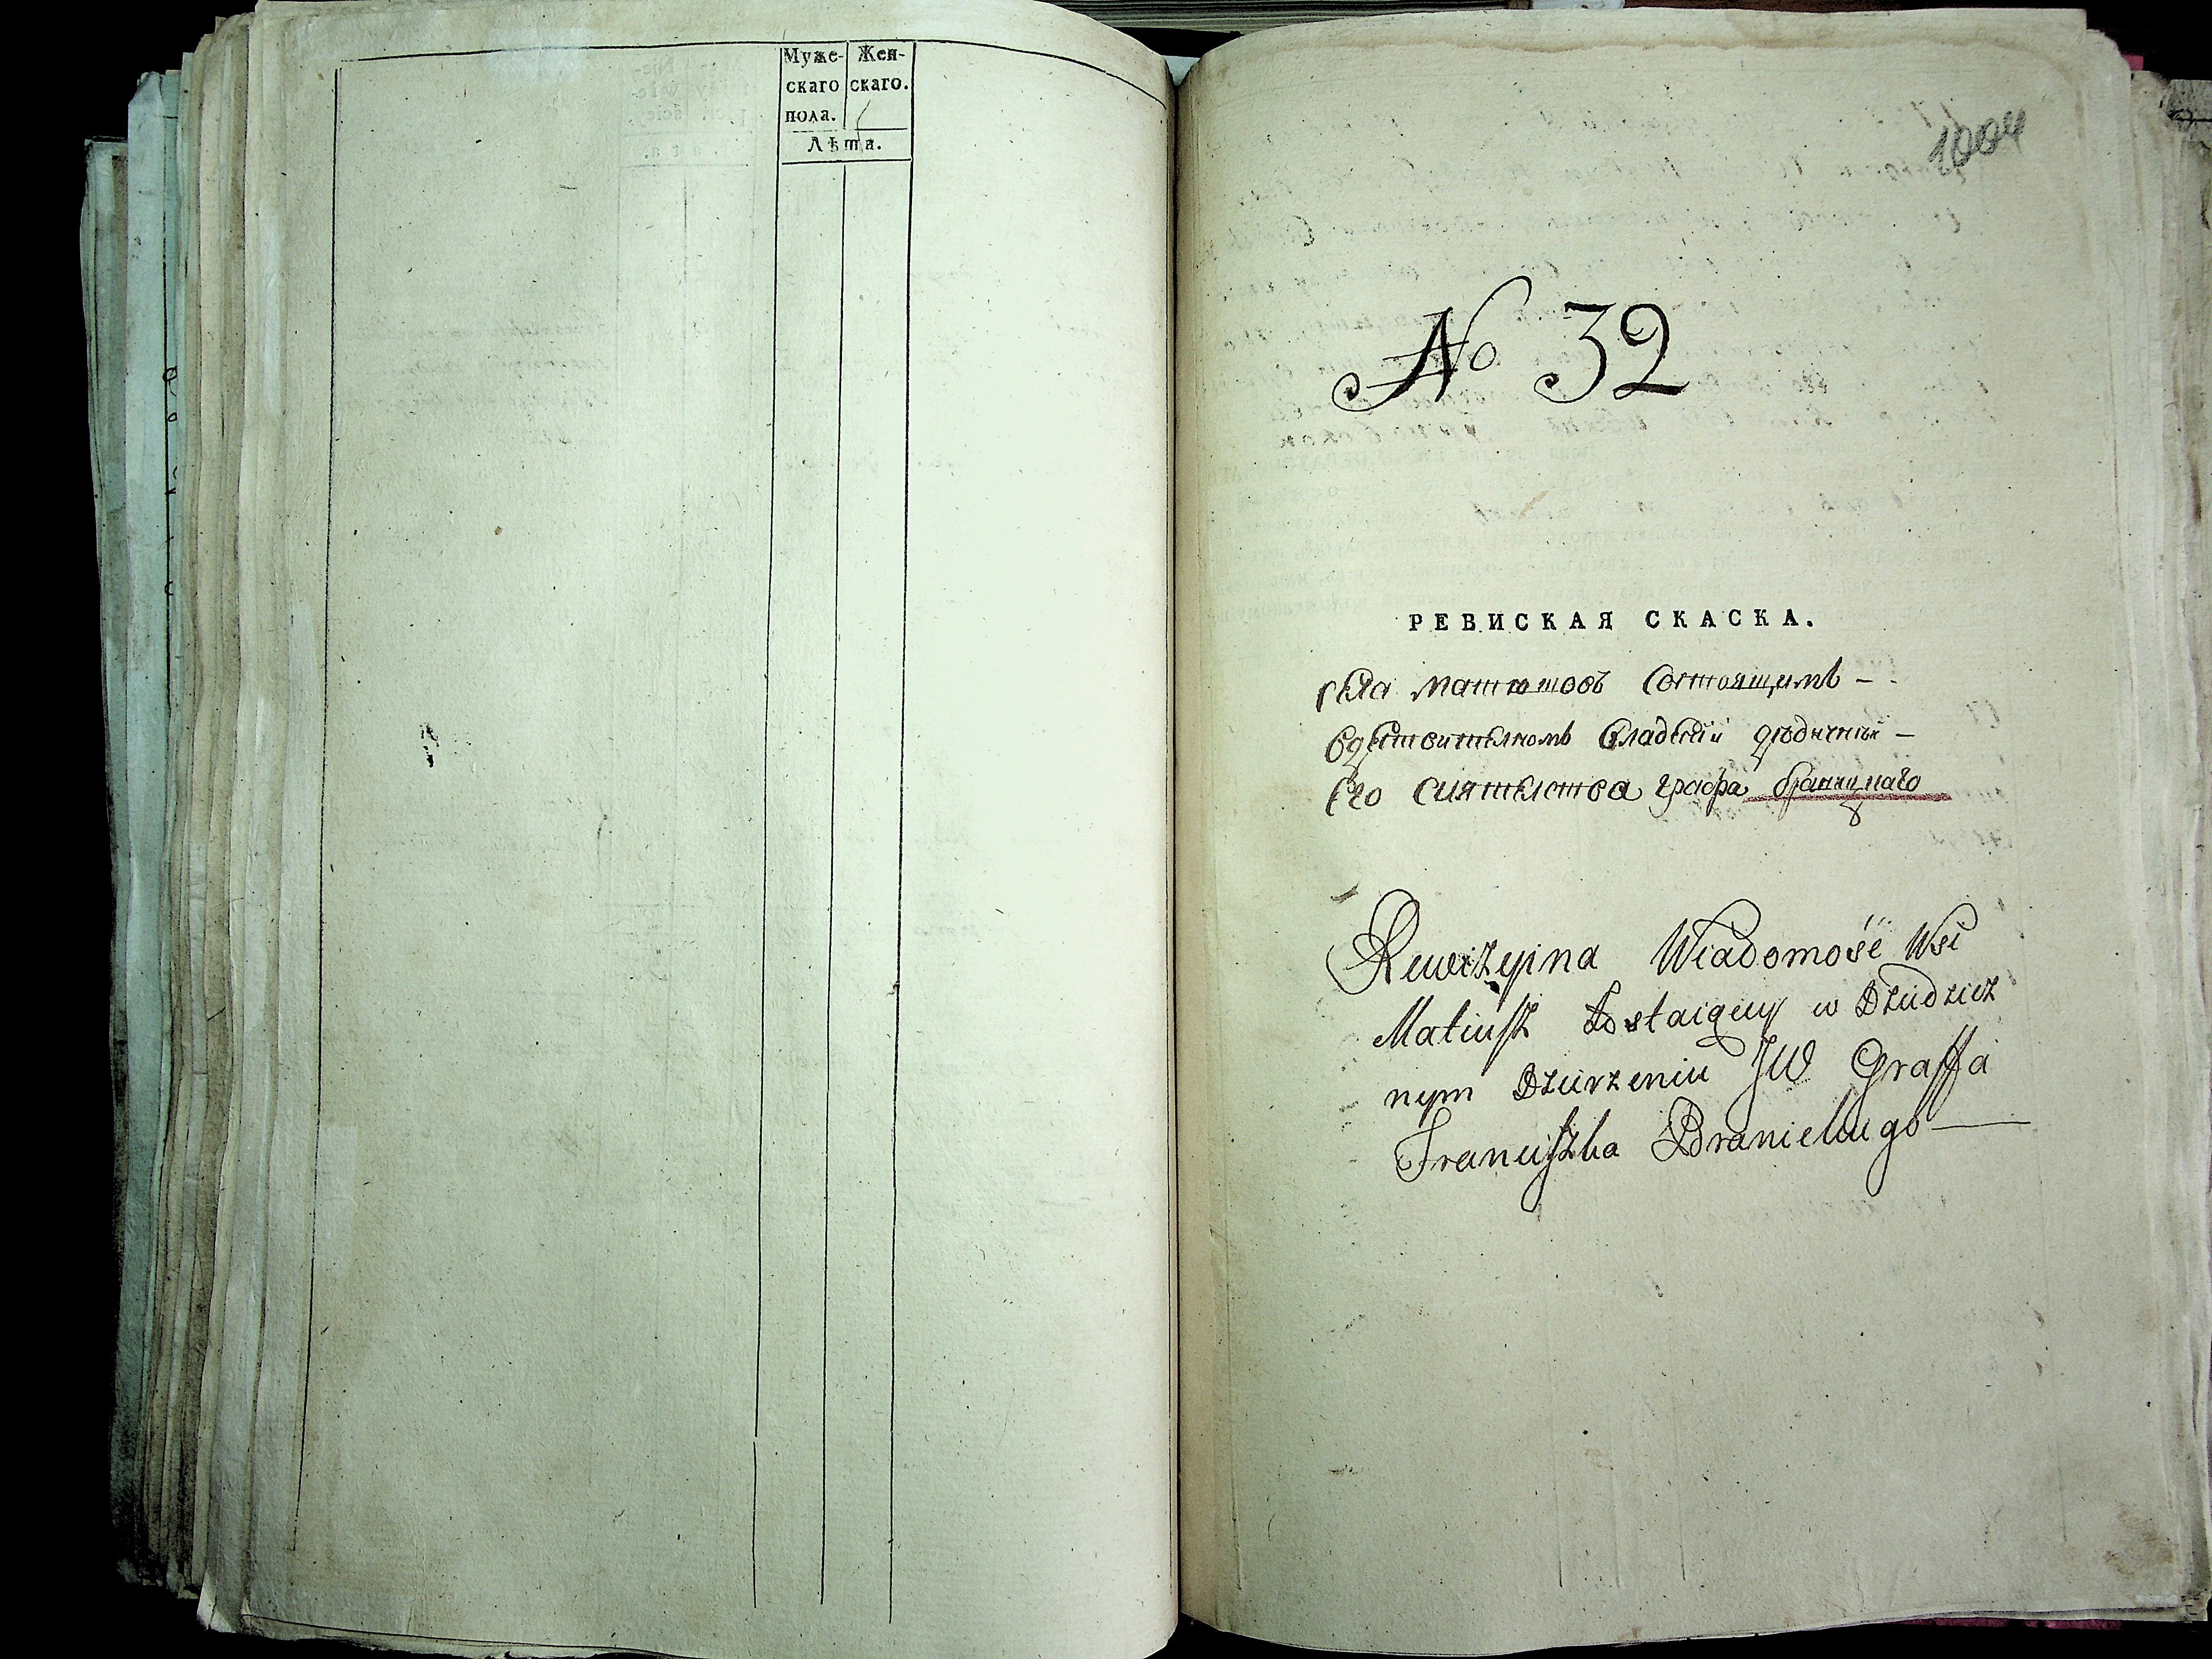 Муже- Жен-
скаго скаго.
пола.
Лѣта.
1004
№ 32
РЕВИСКАЯ СКАСКА.
села матюшовъ состоящимъ –
вдѣствителномъ владѣнїи дѣдичнїй –
Его сиятелства графа браницкаго
Rewizyina Wiadomość Wsi
Matiusz Zostaiący w Dziedzicz
nym Dzierzeniu JW Graffa
Franciszka Branickiego